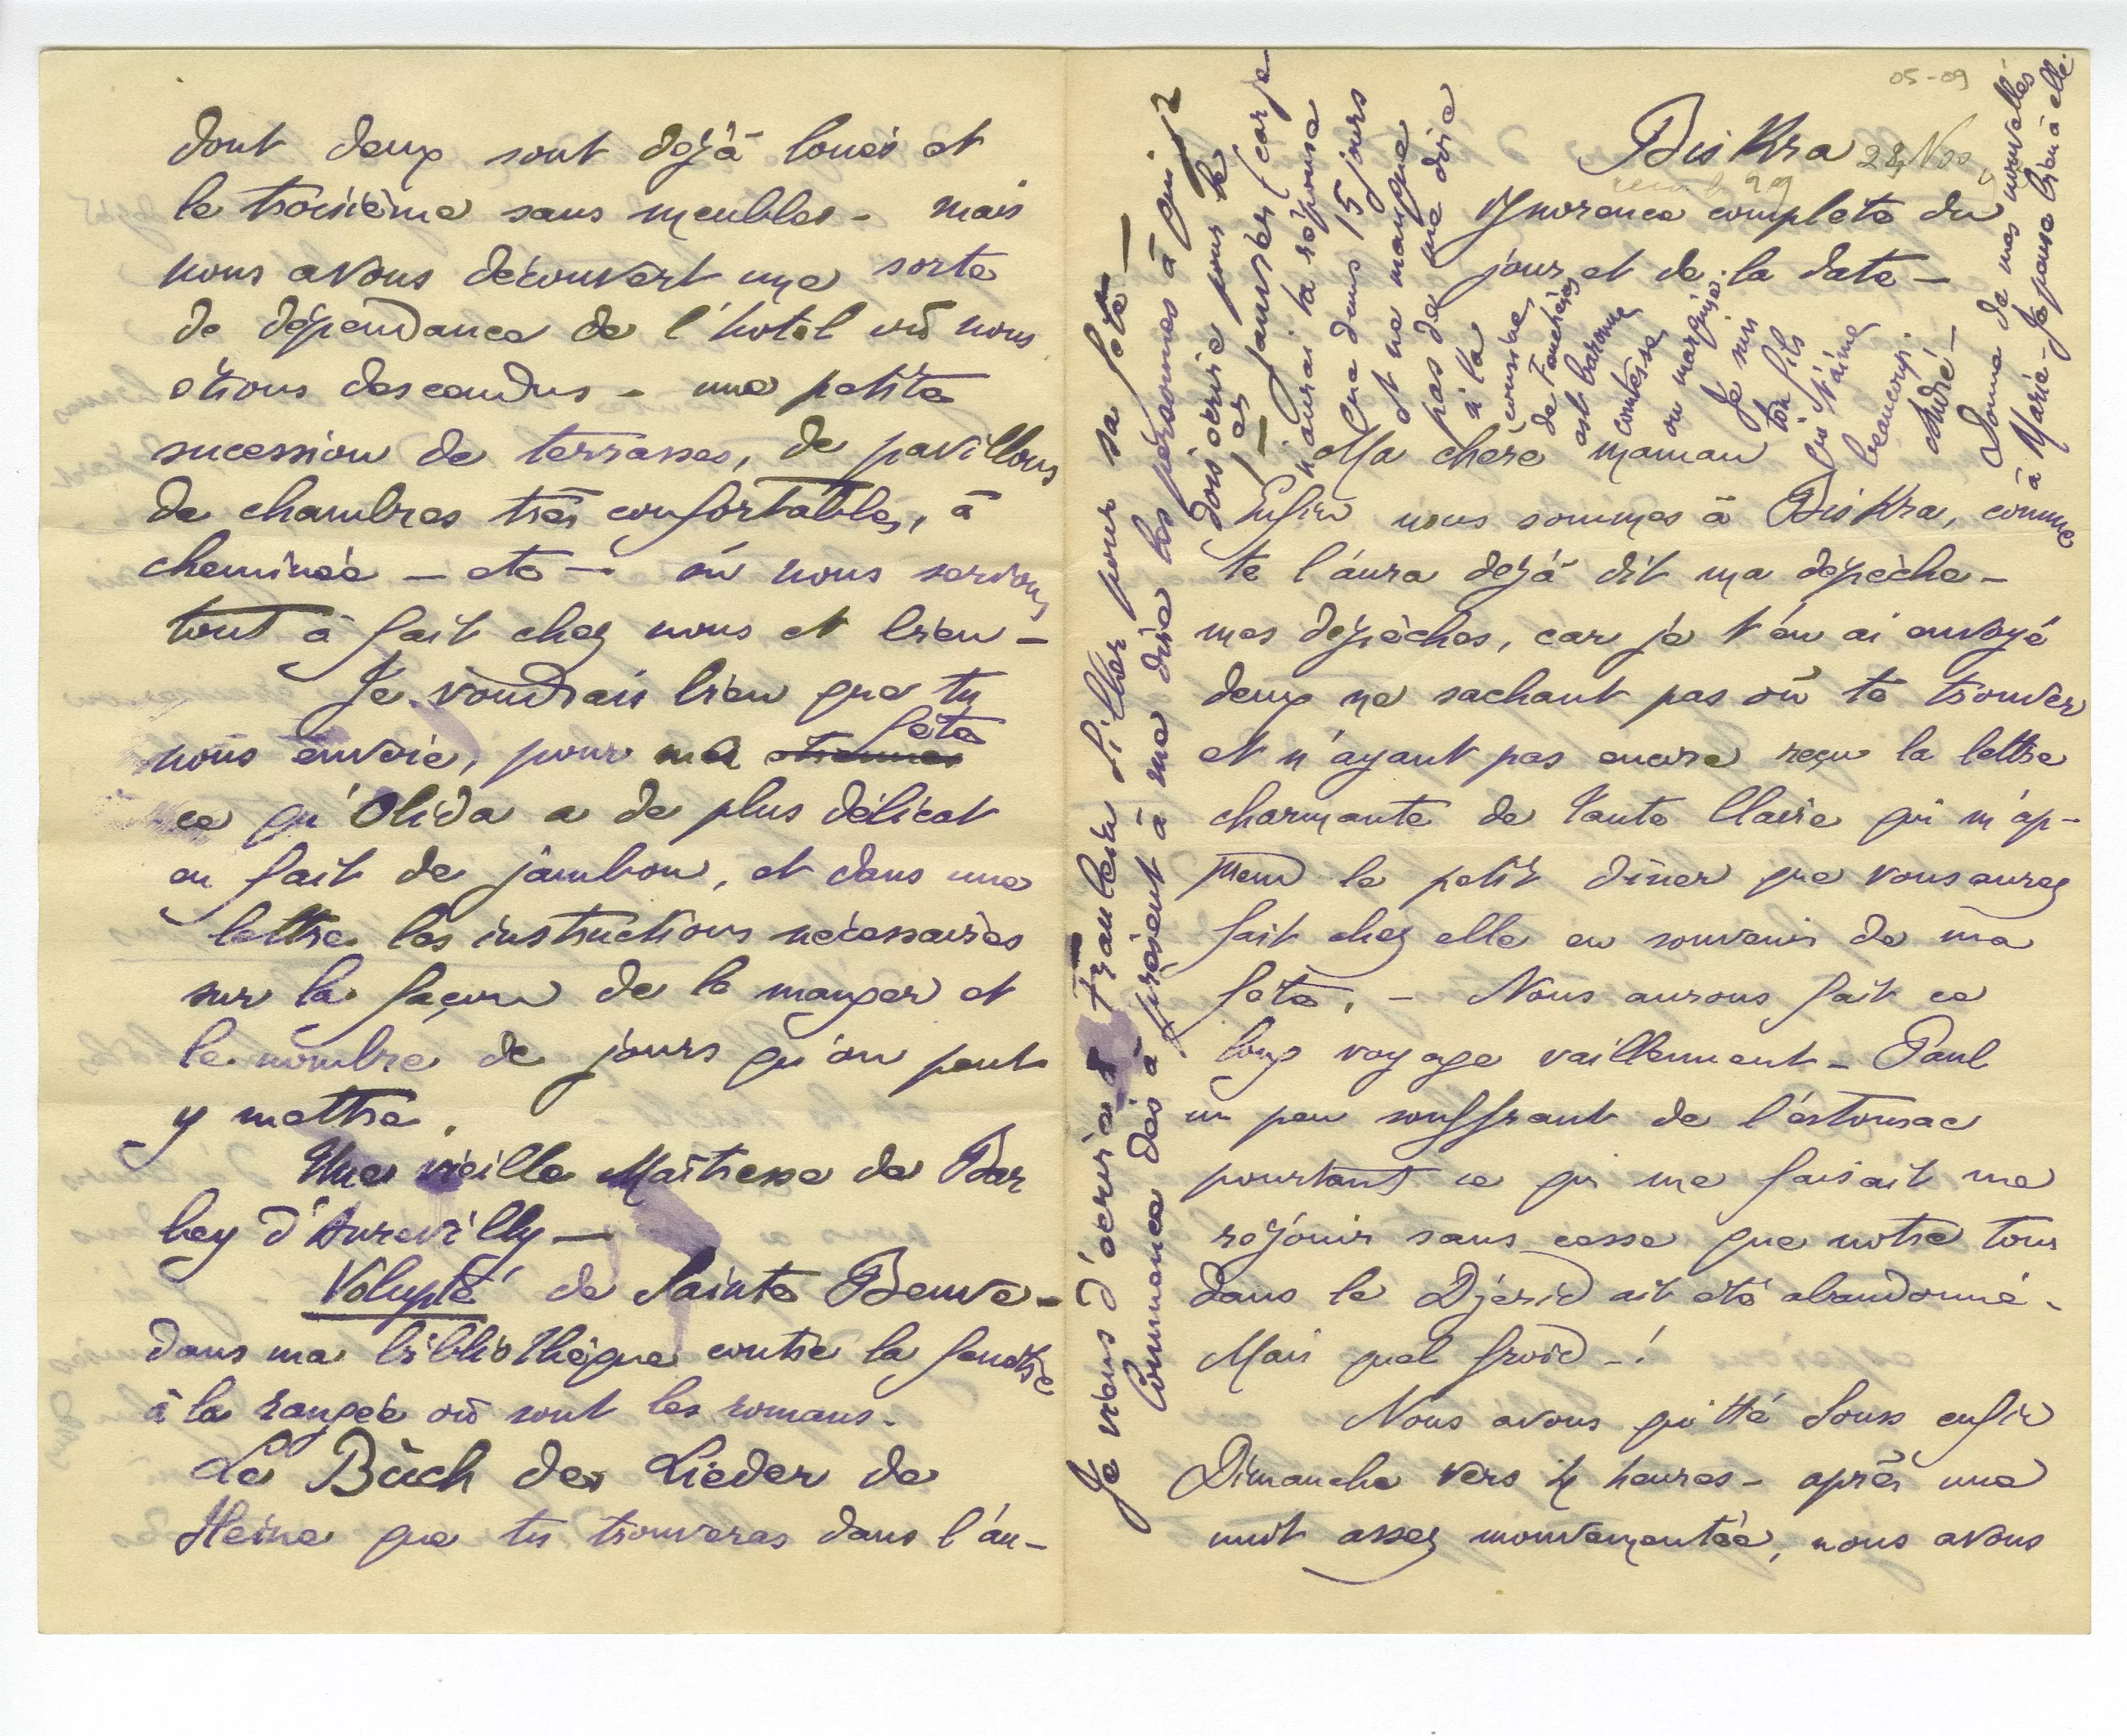 05-09
Biskra 28 Nov
Ignorence complète du
jour et de la date –
Ma chère maman
Enfin nous sommes à Biskra, comme
te l'aura dejà dit ma dépèche –
mes dépèches, car je t'en ai envoyé
deux ne sachant pas où te trouver
et n'ayant pas encore reçu la lettre
charmante de tante Claire qui m'ap-
prend le petit dîner que vous aurez
fait chez elle en souvenir de ma
fête. – Nous aurons fait ce
long voyage vaillemment – Paul
un peu souffrant de l'estomac
pourtant ce qui me faisait me
rejouir sans cesse que notre tour
dans le Djerid ait été abandonné –
Mais quel froid – !
Nous avons quitté Souss enfin
Dimanche vers 4 heures – après une
nuit assez mouvementée, nous avons
dont deux sont dejà loués et
le troisième sans meubles – mais
nous avons découvert une sorte
de dépendance de l'hotel où nous
étions descendus – une petite
sucession de terrasses, de pavillons
de chambres très confortables, à
cheminée – etc – où nous serions
tout à fait chez nous et bien –
Je voudrais bien que tu
nous envoie, pour ma étrennes fête
ce qu'Olida a de plus délicat
en fait de jambon, et dans une
lettre les instructions nécessaires
sur la façon de le manger et
le nombre de jours qu'on peut
y mettre.
Une vieille Maîtresse de Bar
bey d'Aurevilly –
Volupté de Sainte Beuve –
dans ma bibliothèque contre la fenêtre
à la rangée où sont les romans.
Le Büch der Lieder de
Heine que tu trouveras dans l'au-
Je viens d'écrire à Franklin Siller pour sa fête –
Commence dès à présent à me dire les personnes à qui je
dois écrire pour le
1er janvier (car je
n'aurai ta réponse
que dans 15 jours
et ne manque
pas de me dire
si la
cousine
de Fouchères
est baronne
comtesse
ou marquise.
Je suis
ton fils
qui t'aime
beaucoup.
André –
Donne de mes nouvelles
à Marie – Je pense bien à elle.